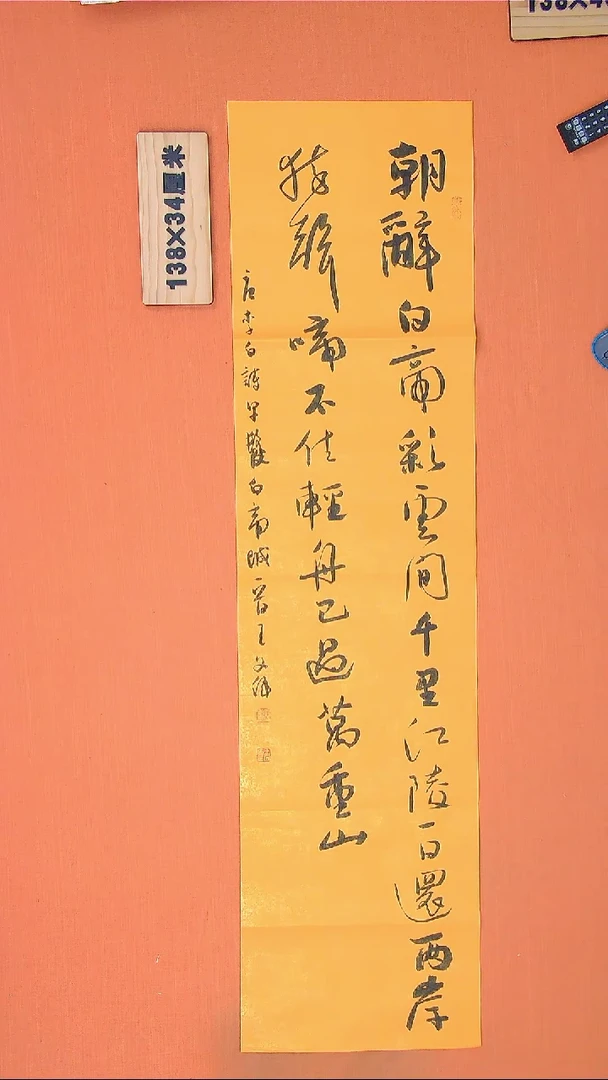 朝辭白帝彩雲間千里江陵一日還兩岸
猿聲啼不住輕舟已過萬重山
唐李白詩早發白帝城 晉王文
138X34厘米
138X4